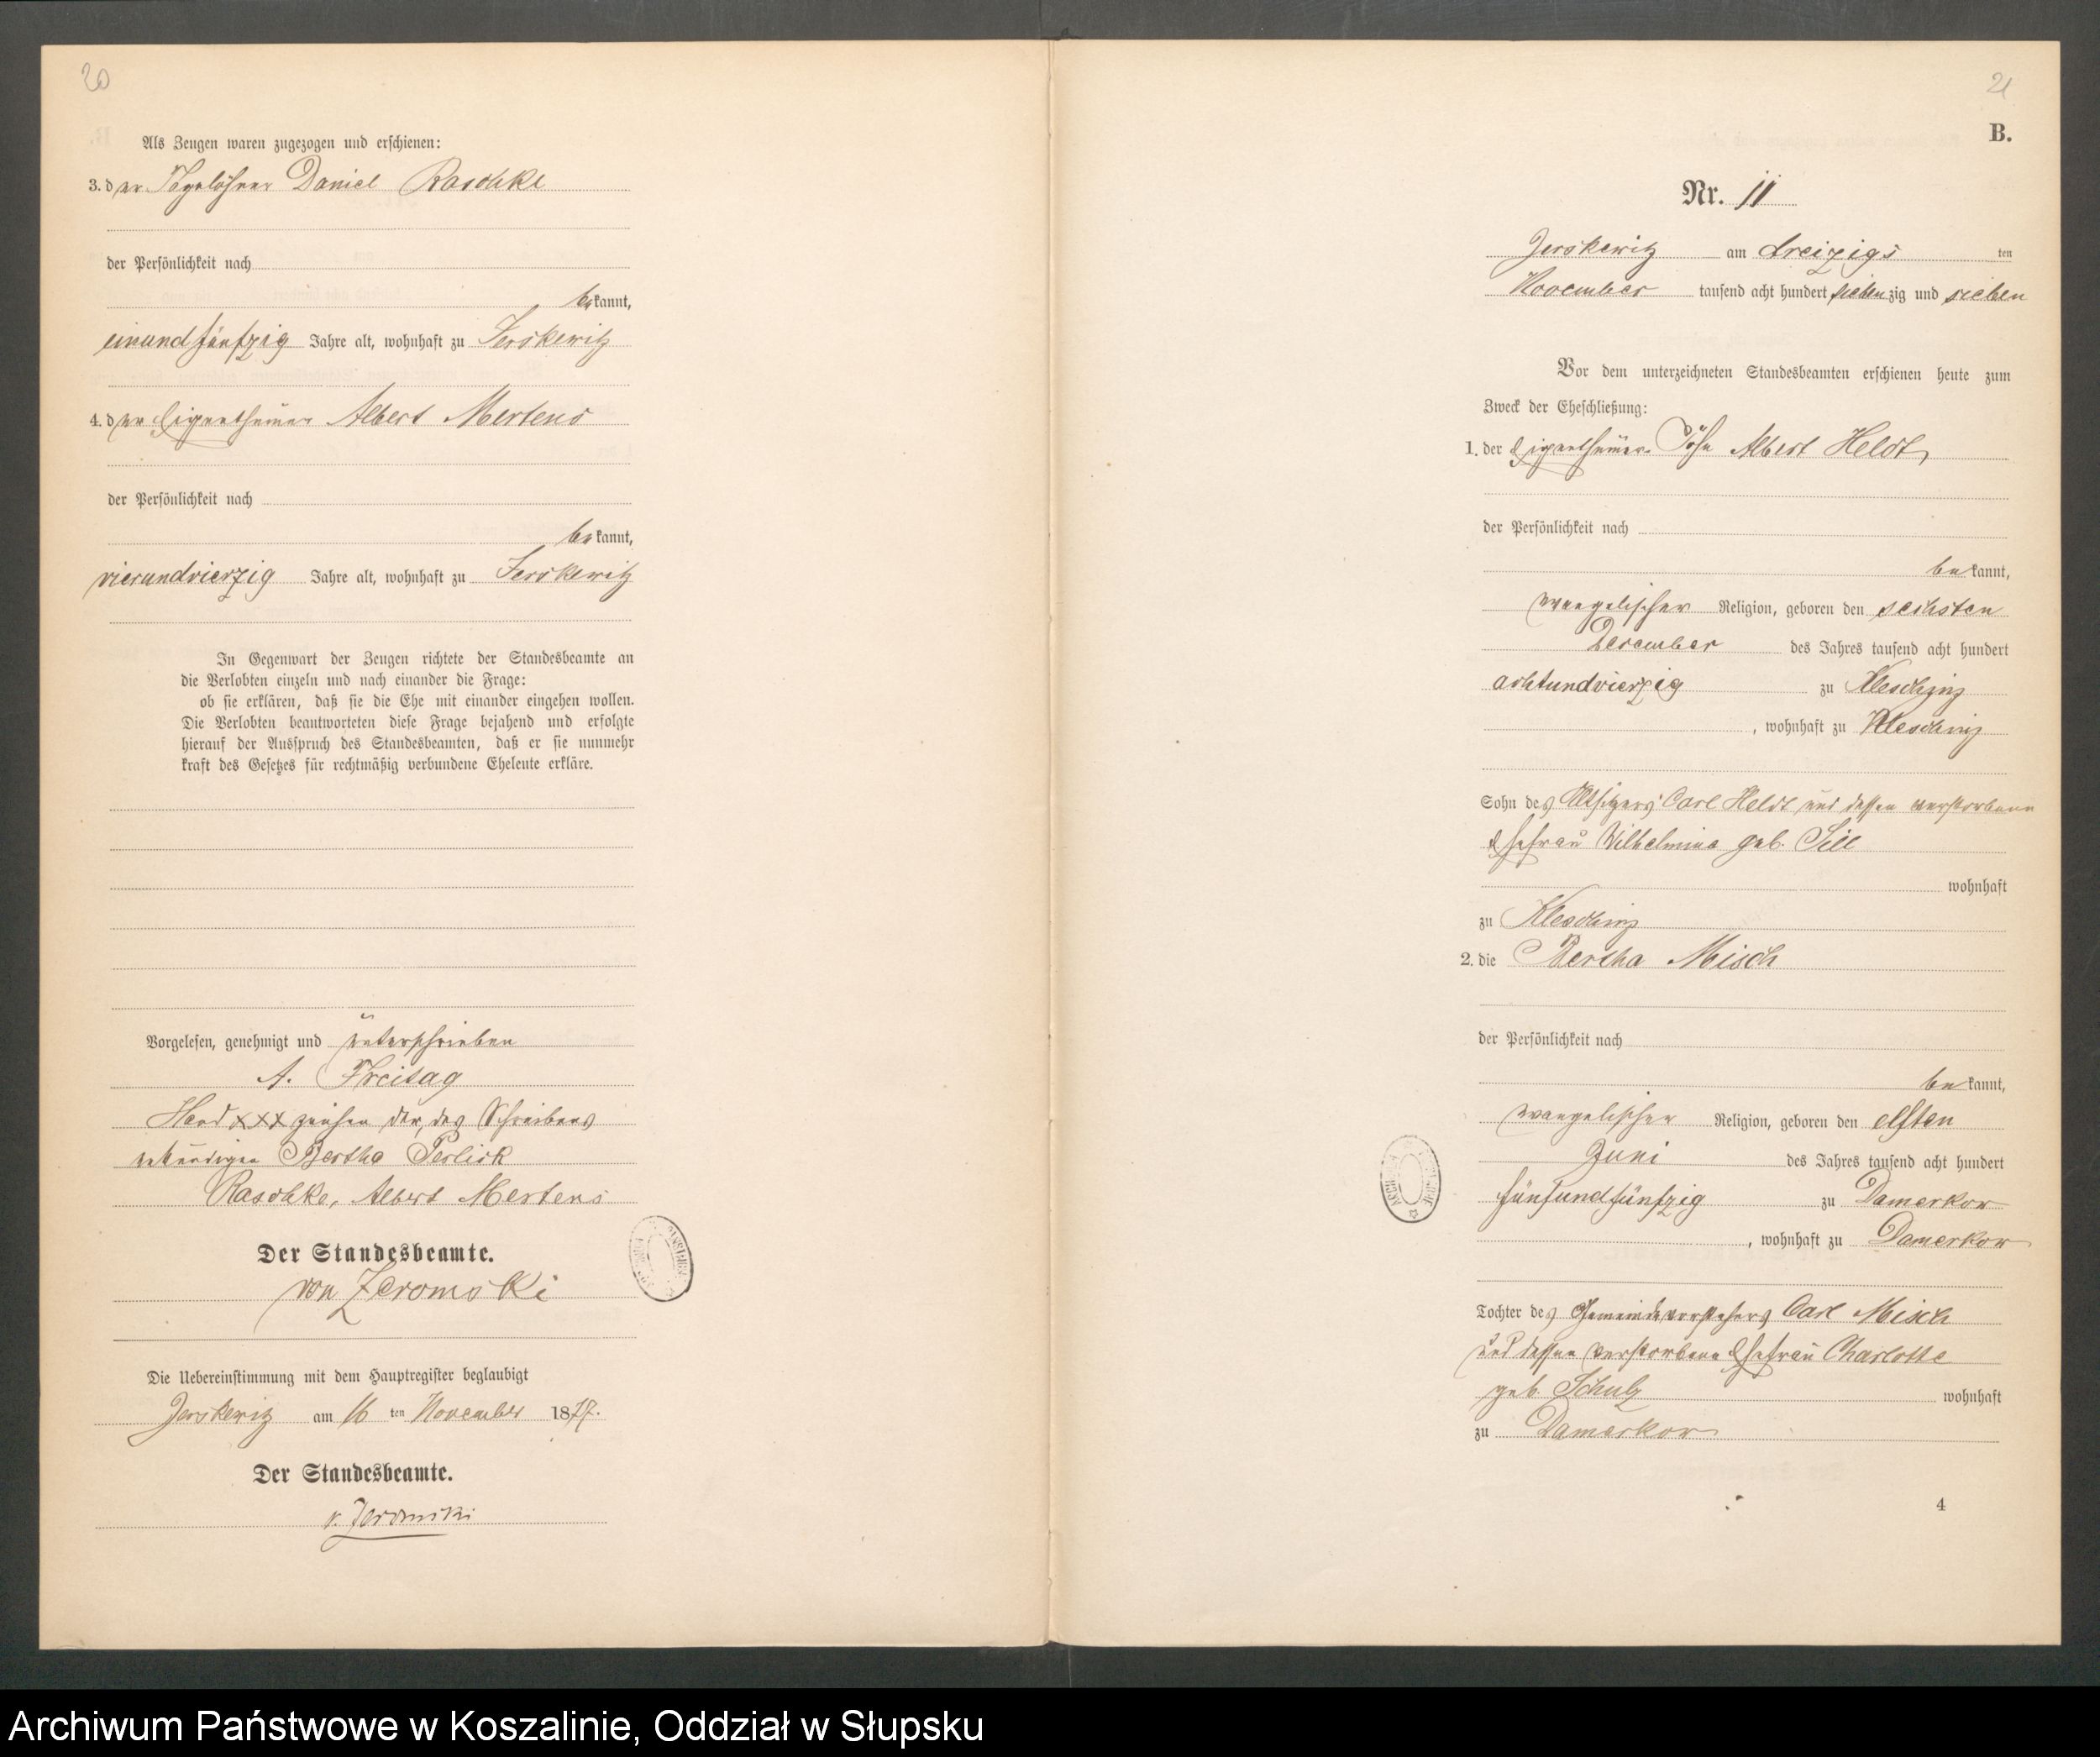 20
Als Zeugen waren zugezogen und erschienen:
3. der Tagelöhner Daniel Raschke
der Persönlichkeit nach
bekannt,
einundfünfzig Jahre alt, wohnhaft zu Jerskewitz
4. der Eigenthümer Albert Mertens
der Persönlichkeit nach
bekannt,
vierundvierzig Jahre alt, wohnhaft zu Jerskewitz
In Gegenwart der Zeugen richtete der Standesbeamte an
die Verlobten einzeln und nach einander die Frage:
ob sie erklären, daß sie die Ehe mit einander eingehen wollen.
Die Verlobten beantworteten diese Frage bejahend und erfolgte
hierauf der Ausspruch des Standesbeamten, daß er sie nunmehr
kraft des Gesetzes für rechtmäßig verbundene Eheleute erkläre.
Vorgelesen, genehmigt und unterschrieben
A. Freitag
Hand xxx zeichen der, des Schreibens
unkundigen Bertha Perlick
Raschke, Albert Mertens
Der Standesbeamte.
von Zeromski
Die Uebereinstimmung mit dem Hauptregister beglaubigt
Jerskewitz am 16 ten November 1877.
Der Standesbeamte.
v. Zeromski
21
B.
Nr. 11
Jerskewitz am dreizigs ten
November tausend acht hundert siebenzig und sieben
Vor dem unterzeichneten Standesbeamten erschienen heute zum
Zweck der Eheschließung:
1. der Eigenthümer Sohn Albert Heldt,
der Persönlichkeit nach
bekannt,
evangelischer Religion, geboren den sechsten
December des Jahres tausend acht hundert
achtundvierzig zu Kleschinz
, wohnhaft zu Kleschinz
Sohn des Altsitzers Carl Heldt und dessen verstorbene
Ehefrau Wilhelmine geb. Sill
wohnhaft
zu Kleschinz
2. die Bertha Misch
der Persönlichkeit nach
bekannt,
evangelischer Religion, geboren den elften
Juni des Jahres tausend acht hundert
fünfundfünfzig zu Damerkow
, wohnhaft zu Damerkow
Tochter des Gemeindevorstehers Carl Misch
und dessen verstorbene Ehefrau Charlotte
geb. Schulz wohnhaft
zu Damerkow
4
Archiwum Państwowe w Koszalinie, Oddział w Słupsku